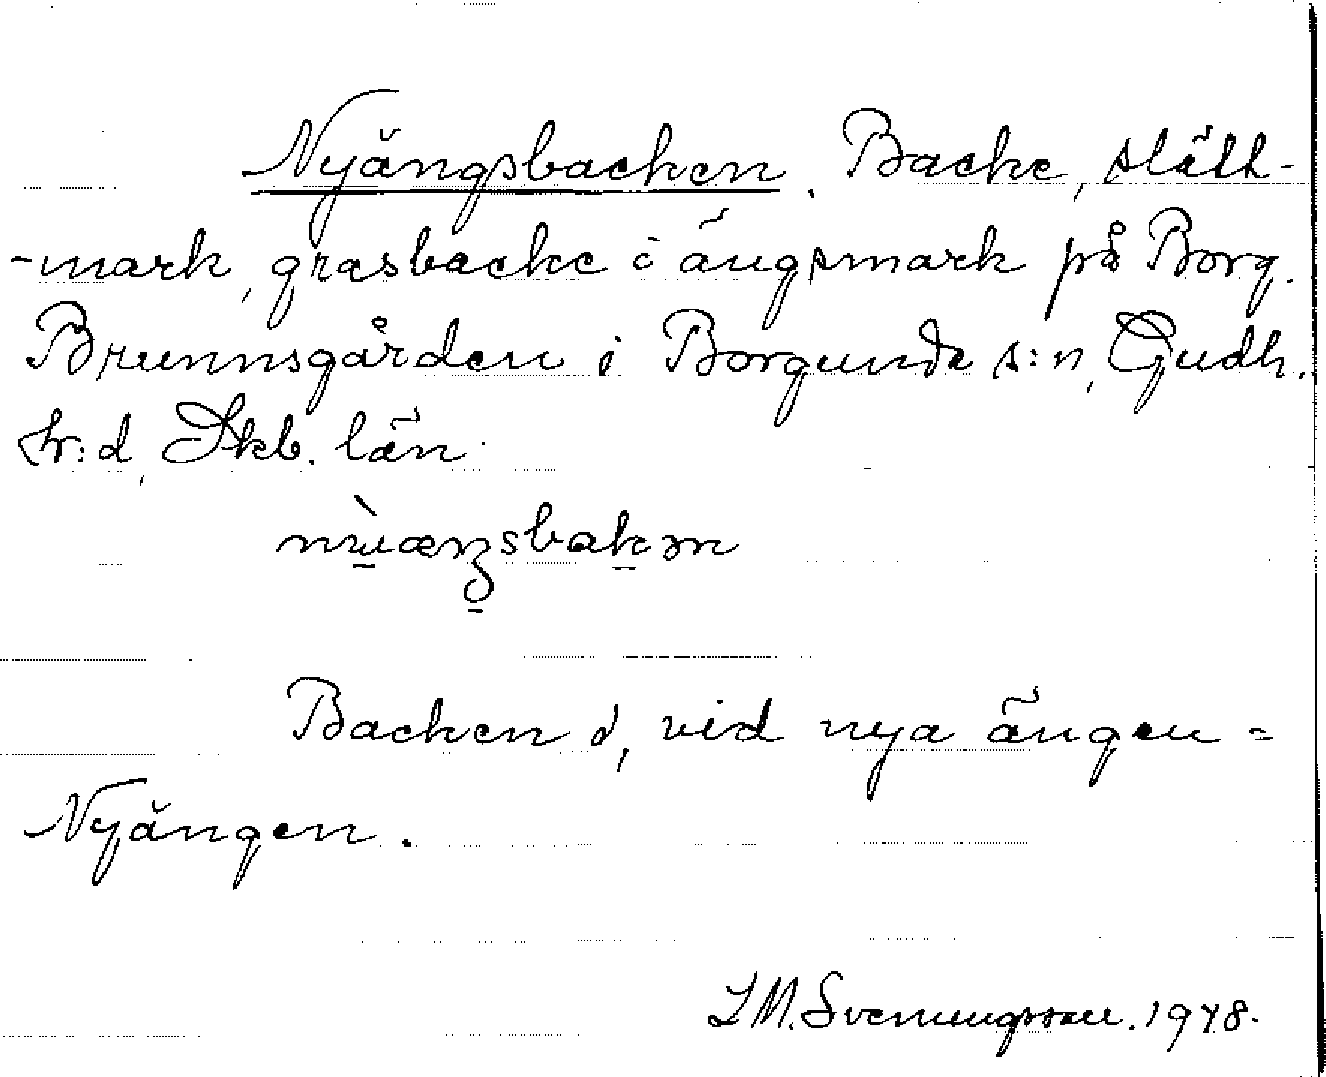 Nyängsbacken. Backe, slätt-
-mark, gräsbacke i ängsmark på Borg.
Brunnsgården i Borgunda s:n, Gudh.
hr:d, Skb. län.
Backen i, vid nya ängen =
Nyängen.
I M. Svenungsson. 1948.